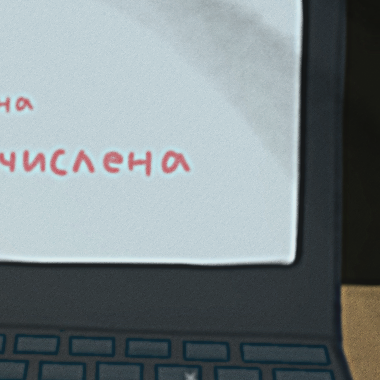 на
числена